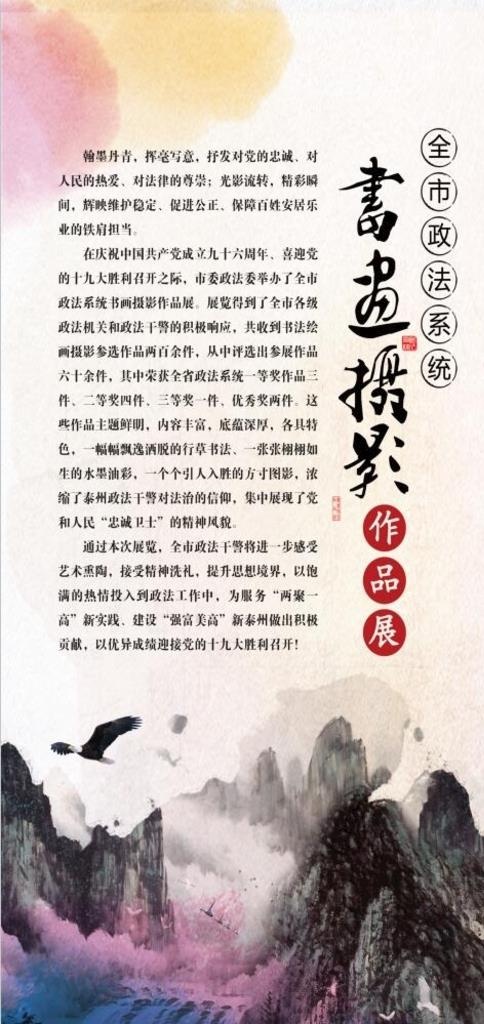 全市政法系统
書畫攝影
作品展
翰墨丹青，挥毫写意，抒发对党的忠诚、对
人民的热爱、对法律的尊崇；光影流转，精彩瞬
间，辉映维护稳定、促进公正、保障百姓安居乐
业的铁肩担当。
在庆祝中国共产党成立九十六周年、喜迎党
的十九大胜利召开之际，市委政法委举办了全市
政法系统书画摄影作品展。展览得到了全市各级
政法机关和政法干警的积极响应，共收到书法绘
画摄影参选作品两百余件，从中评选出参展作品
六十余件，其中荣获全省政法系统一等奖作品三
件、二等奖四件、三等奖一件、优秀奖两件。这
些作品主题鲜明，内容丰富，底蕴深厚，各具特
色，一幅幅飘逸洒脱的行草书法、一张张栩栩如
生的水墨油彩，一个个引人入胜的方寸图影，浓
缩了泰州政法干警对法治的信仰，集中展现了党
和人民“忠诚卫士”的精神风貌。
通过本次展览，全市政法干警将进一步感受
艺术熏陶，接受精神洗礼，提升思想境界，以饱
满的热情投入到政法工作中，为服务“两聚一
高”新实践、建设“强富美高”新泰州做出积极
贡献，以优异成绩迎接党的十九大胜利召开！